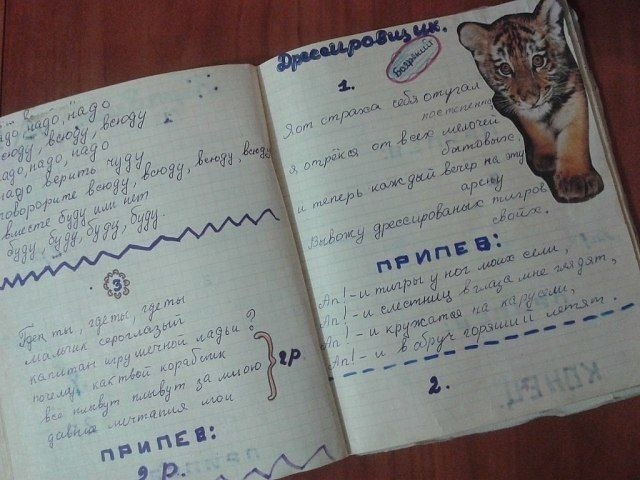 надо, надо, надо
всюду, всюду, всюду
надо, надо, надо
надо верить чуду
говорорите всюду, всюду, всюду, всюду
вместе буду или нет
буду, буду, буду, буду.
3
Где ты, где ты, где ты
мальчик сероглазый
капитан игрушечной ладьи?
почему как твой кораблик
все плывут плывут за мною
давние мечтания мои
2р.
ПРИПЕВ:
2 р.
Дрессировщик.
Боярский
1.
Я от страха себя отучал
постепенно,
я отрёкся от всех мелочей
бытовых
и теперь каждый вечер на эту
арену
Вывожу дрессированых тигров
своих.
ПРИПЕВ:
Ап! - и тигры у ног моих сели,
Ап! - и с лестниц в глаза мне глядят,
Ап! - и кружатся на карусели,
Ап! - и в обруч горящий летят.
2.
КОНЕЦ